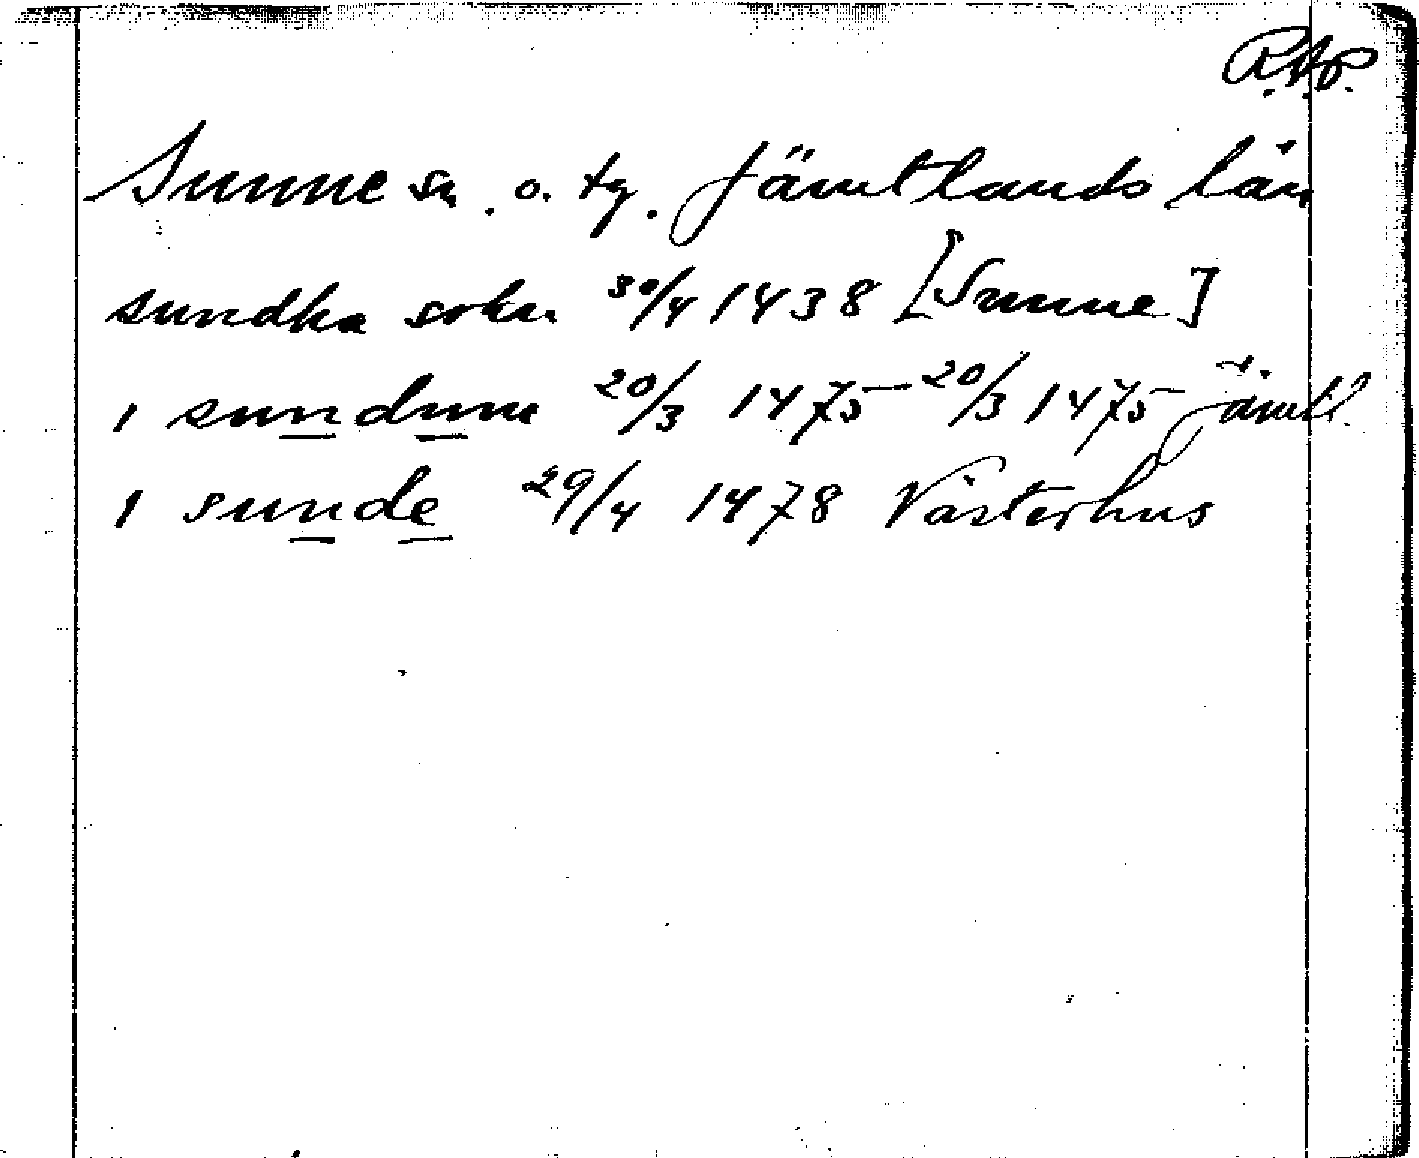 R.A.P.
Sunne sn. o. tg. Jämtlands län
sundha sokn 30/4 1438 [Sunne]
i sundum 20/3 1475 – 20/3 1475 Jämtl.
i sunde 29/4 1478 Västerhus